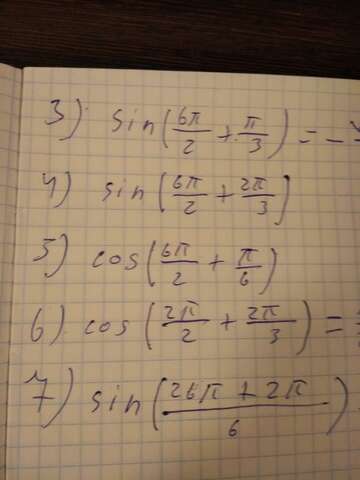 3) sin(6π/2 + π/3) = -
4) sin(6π/2 + 2π/3)
5) cos(6π/2 + π/6)
6) cos(2π/2 + 2π/3) =
7) sin((26π + 2π)/6)